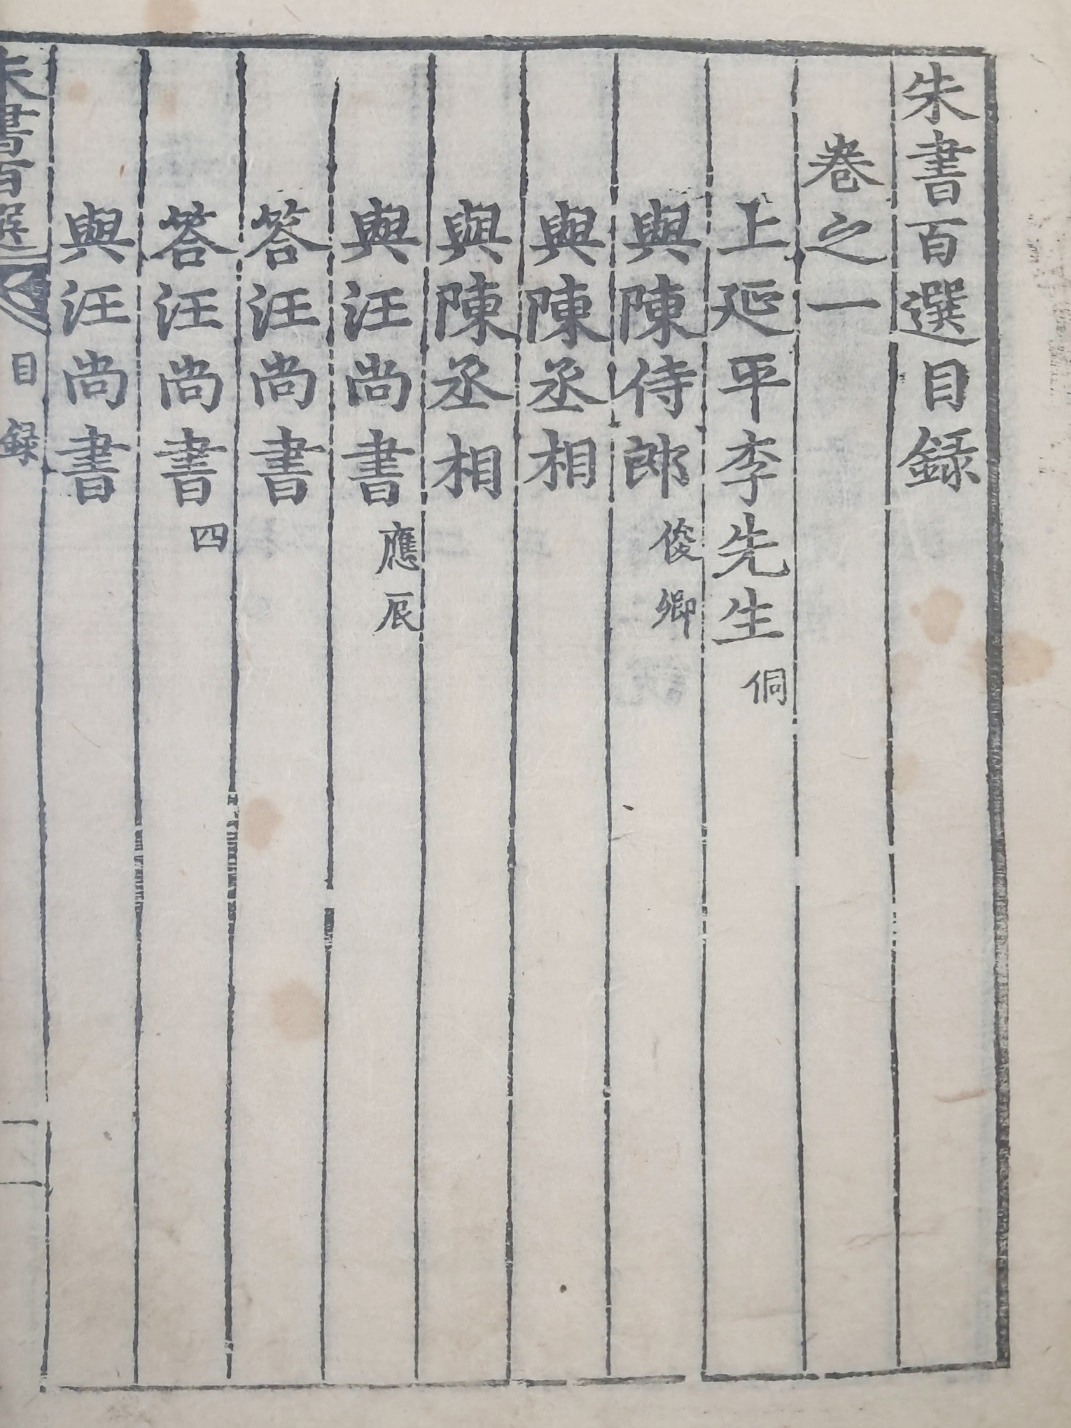 朱書百選目録
卷之一
上延平李先生 侗
與陳侍郎 俊卿
與陳丞相
與陳丞相
與汪尚書 應辰
答汪尚書
答汪尚書 四
與汪尚書
朱書百選 目録 一